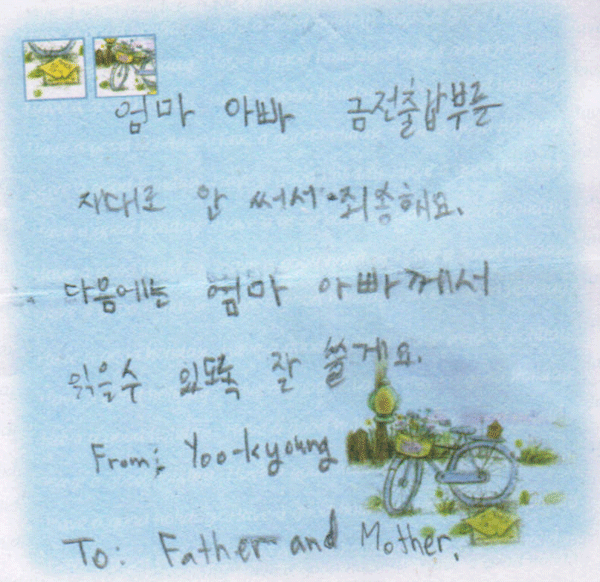 엄마 아빠 금전출납부를
지대로 안 써서 죄송해요.
다음에는 엄마 아빠께서
읽을수 있도록 잘 쓸게요.
From: Yoo-kyoung
To: Father and Mother.